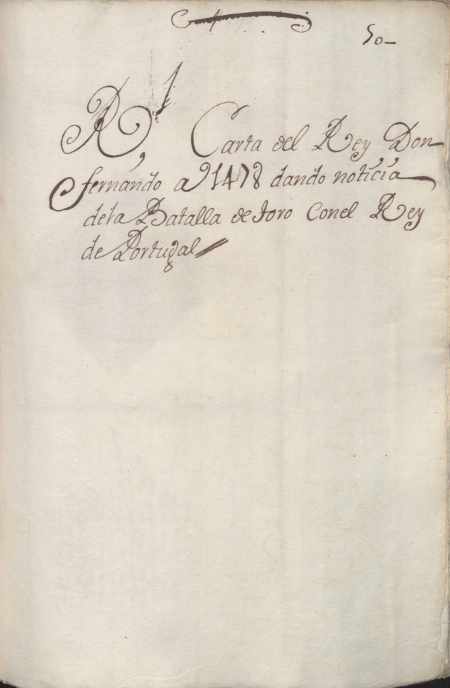 50_
Rl Carta del Rey Don
fernando aº 1478 dando noticia
dela Batalla de toro Conel Rey
de Portugal